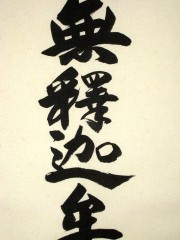 無釋迦牟